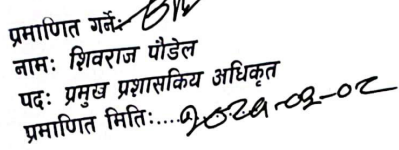 प्रमाणित गर्नेः
नामः शिवराज पौडेल
पदः प्रमुख प्रशासकिय अधिकृत
प्रमाणित मितिः....